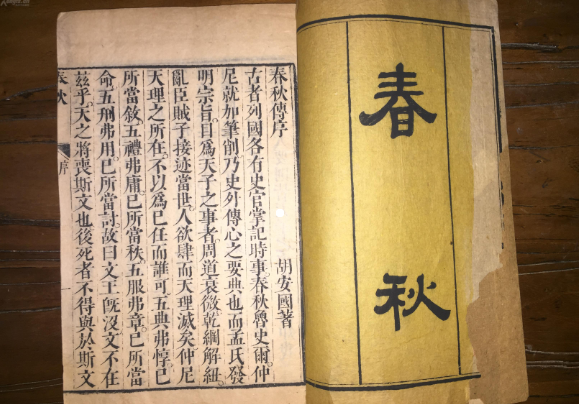 春秋
春秋傳序 胡安國著
古者列國各有史官掌記時事春秋魯史爾仲
尼就加筆削乃史外傳心之要典也而孟氏發
明宗旨目爲天子之事者周道衰微乾綱解紐
亂臣賊子接迹當世人欲肆而天理滅矣仲尼
天理之所在不以爲已任而誰可五典弗惇已
所當敘五禮弗庸已所當秩五服弗章已所當
命五刑弗用已所當討故曰文王旣沒文不在
茲乎天之將喪斯文也後死者不得與於斯文
春秋 序